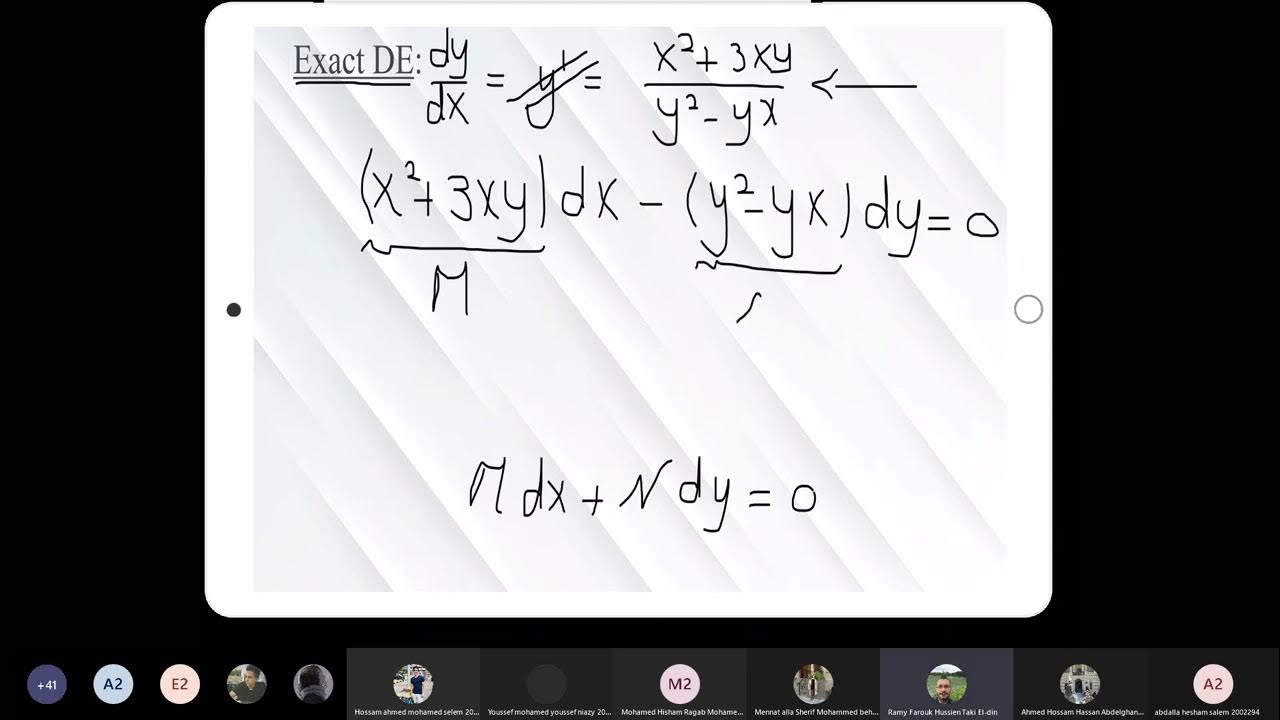 Exact DE: dy/dx = y' = x²+3xy / y²-yx ←
(x²+3xy)dx - (y²-yx)dy=0
M
Mdx+Ndy=0
+41 A2 E2 M2 A2
Hossam ahmed mohamed selem 20... Youssef mohamed youssef niazy 20... Mohamed Hisham Ragab Mohame... Mennat alla Sherif Mohammed beh... Ramy Farouk Hussien Taki El-din Ahmed Hossam Hassan Abdelghan... abdalla hesham salem 2002294